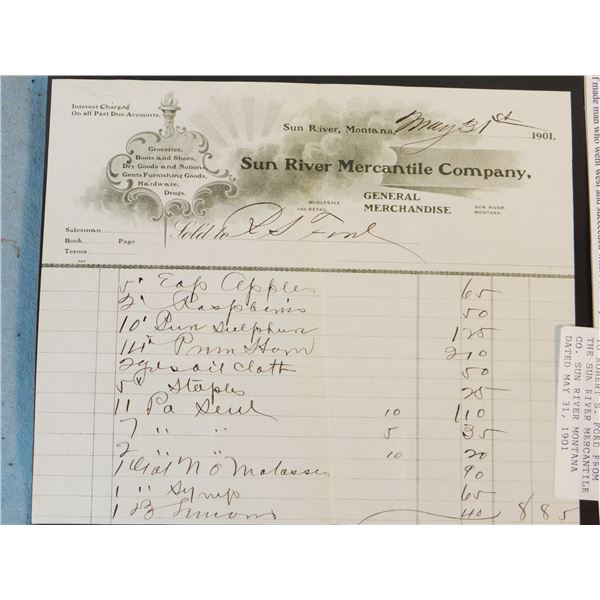 Interest Charged
On all Past Due Accounts.
Groceries,
Boots and Shoes,
Dry Goods and Notions,
Gents Furnishing Goods,
Hardware,
Drugs.
Sun River, Montana, May 31st 1901.
Sun River Mercantile Company,
WHOLESALE AND RETAIL
GENERAL MERCHANDISE
SUN RIVER, MONTANA.
Salesman
Book Page
Terms
Sold to R S Ford
5 Eap Apples 65
2 50
10 Sulphur 125
Ham 210
2 yds oil Cloth 50
5 Staples 25
11 Pa 10 110
7 " " 5 35
2 " " 10 20
1 Gal N O Molasses 90
1 " Syrup 65
1 40 885
TO ROBERT S. FORD FROM
THE SUN RIVER MERCANTILE
CO. SUN RIVER MONTANA
DATED MAY 31, 1901
f made man who went west and succeeded